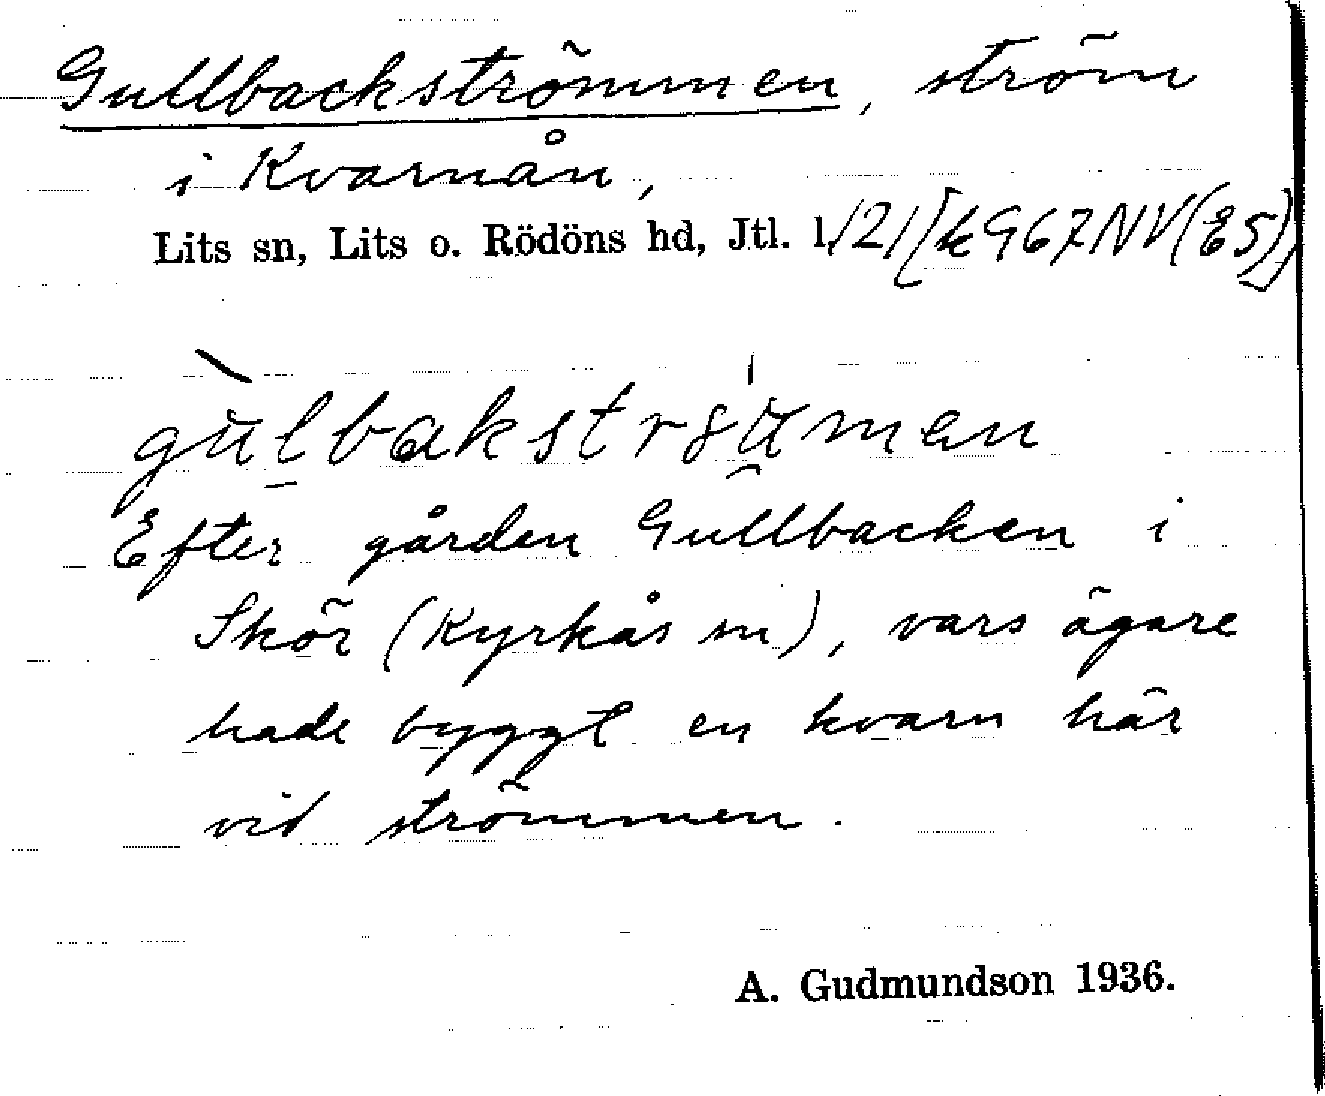 Gullbackströmmen, ström
i Kvarnån,
Lits sn, Lits o. Rödöns hd, Jtl. l./21 [k 967NV(E5)]
gùlbakstrѳ̀umen
Efter gården Gullbacken i
Skör (Kyrkås sn), vars ägare
hade byggt en kvarn här
vid strömmen.
A. Gudmundson 1936.